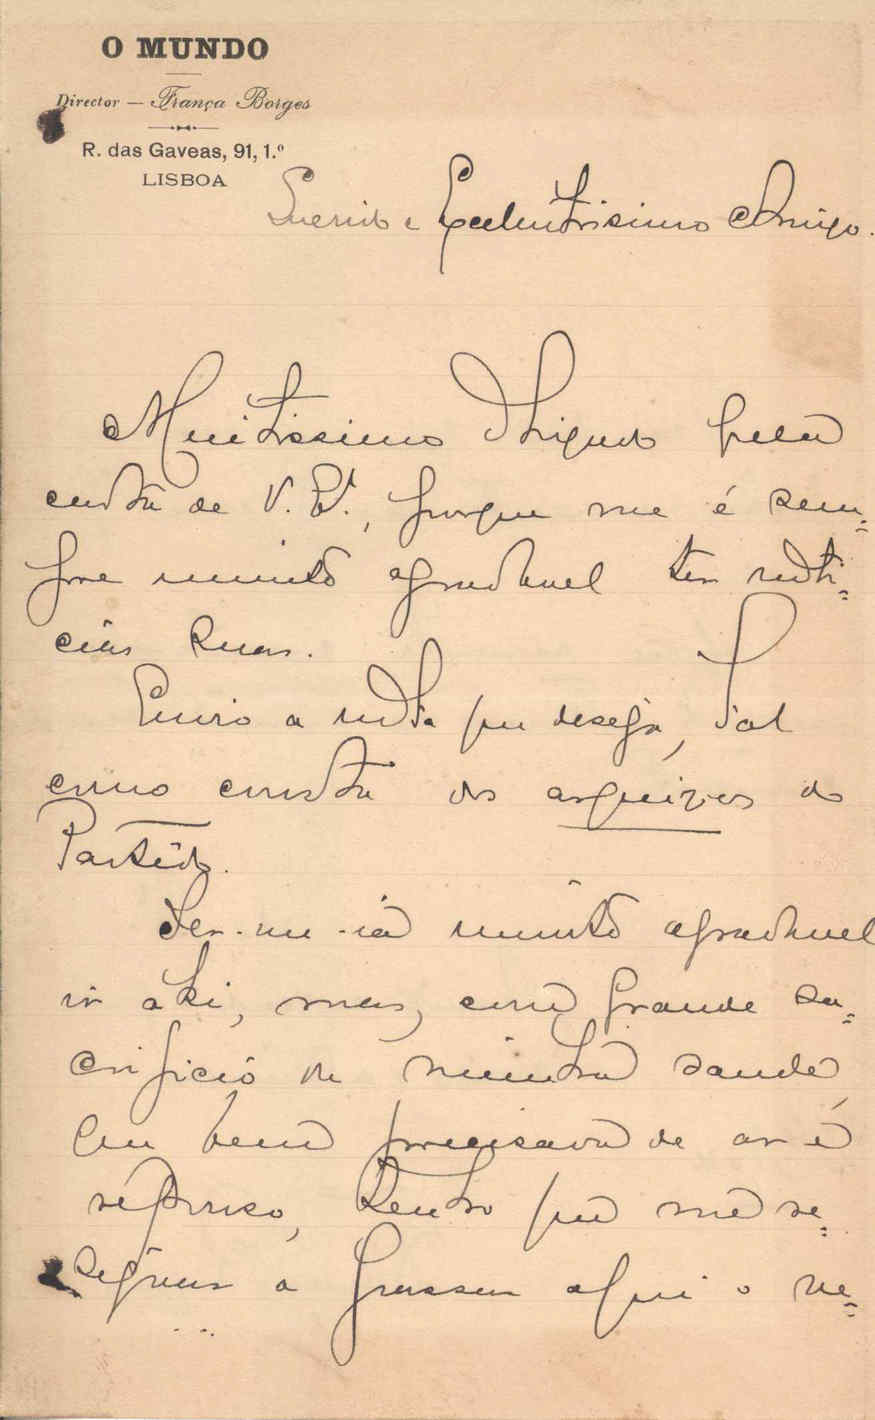 O MUNDO
Director — França Borges
R. das Gaveas, 91, 1.º
LISBOA
Querido e Excelentissimo Amigo.
Muitissimo obrigado pela
carta de V. Ex.ª, porque me é sem=
pre muito agradavel ter noti=
cias suas.
Envio a nota que deseja, tal
como consta dos arquivos do
Partido.
Ser-me-ia muito agradavel
ir aki, mas, com grande sa=
crificio da minha saude,
que bem precisava de ar e
repouso, tenho que me re=
signar a passar aqui o ve=